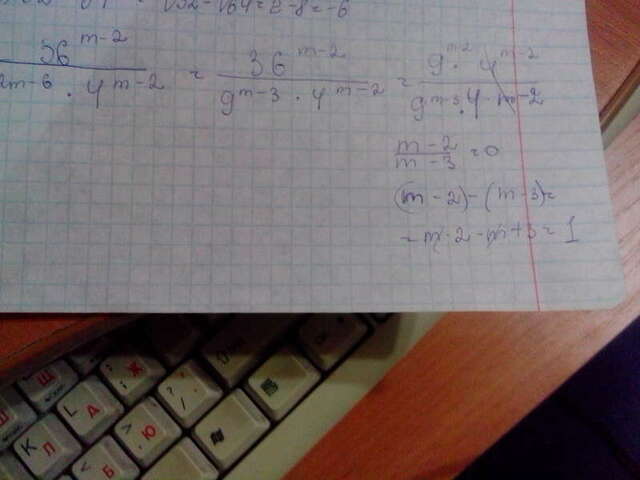 √32 - √64 = 2 - 8 = -6
36^(m-2) / 2m-6 · 4^(m-2) = 36^(m-2) / 9^(m-3) · 4^(m-2) = 9^(m-2) · 4^(m-2) / 9^(m-3) · 4^(m-2)
m-2 / m-3 = 0
(m-2)-(m-3)=
= m-2-m+3=1
Ш
Ш
Ж
:
;
L
Д
?
/
>
.
Ю
К
Л
<
Б